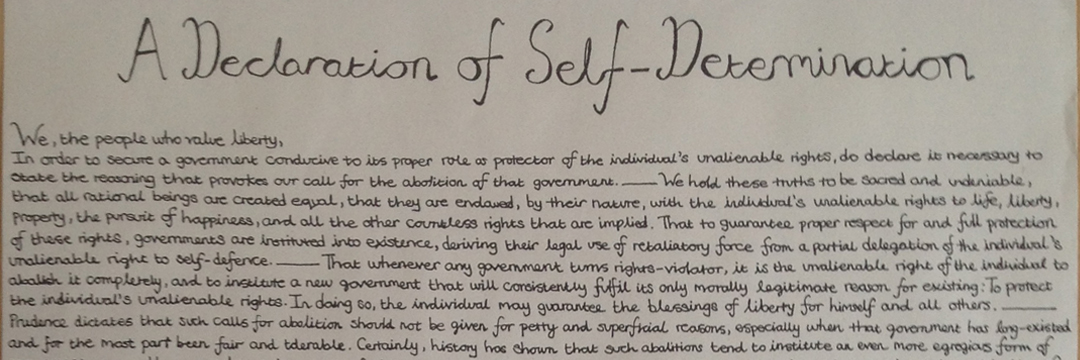 A Declaration of Self-Determination
We, the people who value liberty,
In order to secure a government conducive to its proper role as protector of the individual's unalienable rights, do declare it necessary to
state the reasoning that provokes our call for the abolition of that government. —— We hold these truths to be sacred and undeniable,
that all rational beings are created equal, that they are endowed, by their nature, with the individual's unalienable rights to life, liberty,
property, the pursuit of happiness, and all the other countless rights that are implied. That to guarantee proper respect for and full protection
of these rights, governments are instituted into existence, deriving their legal use of retaliatory force from a partial delegation of the individual's
unalienable right to self-defence. —— That whenever any government turns rights-violator, it is the unalienable right of the individual to
abolish it completely, and to institute a new government that will consistently fulfil its only morally legitimate reason for existing: To protect
the individual's unalienable rights. In doing so, the individual may guarantee the blessings of liberty for himself and all others. ——
Prudence dictates that such calls for abolition should not be given for petty and superficial reasons, especially when that government has long-existed
and for the most part been fair and tolerable. Certainly, history has shown that such abolitions tend to institute an even more egregious form of